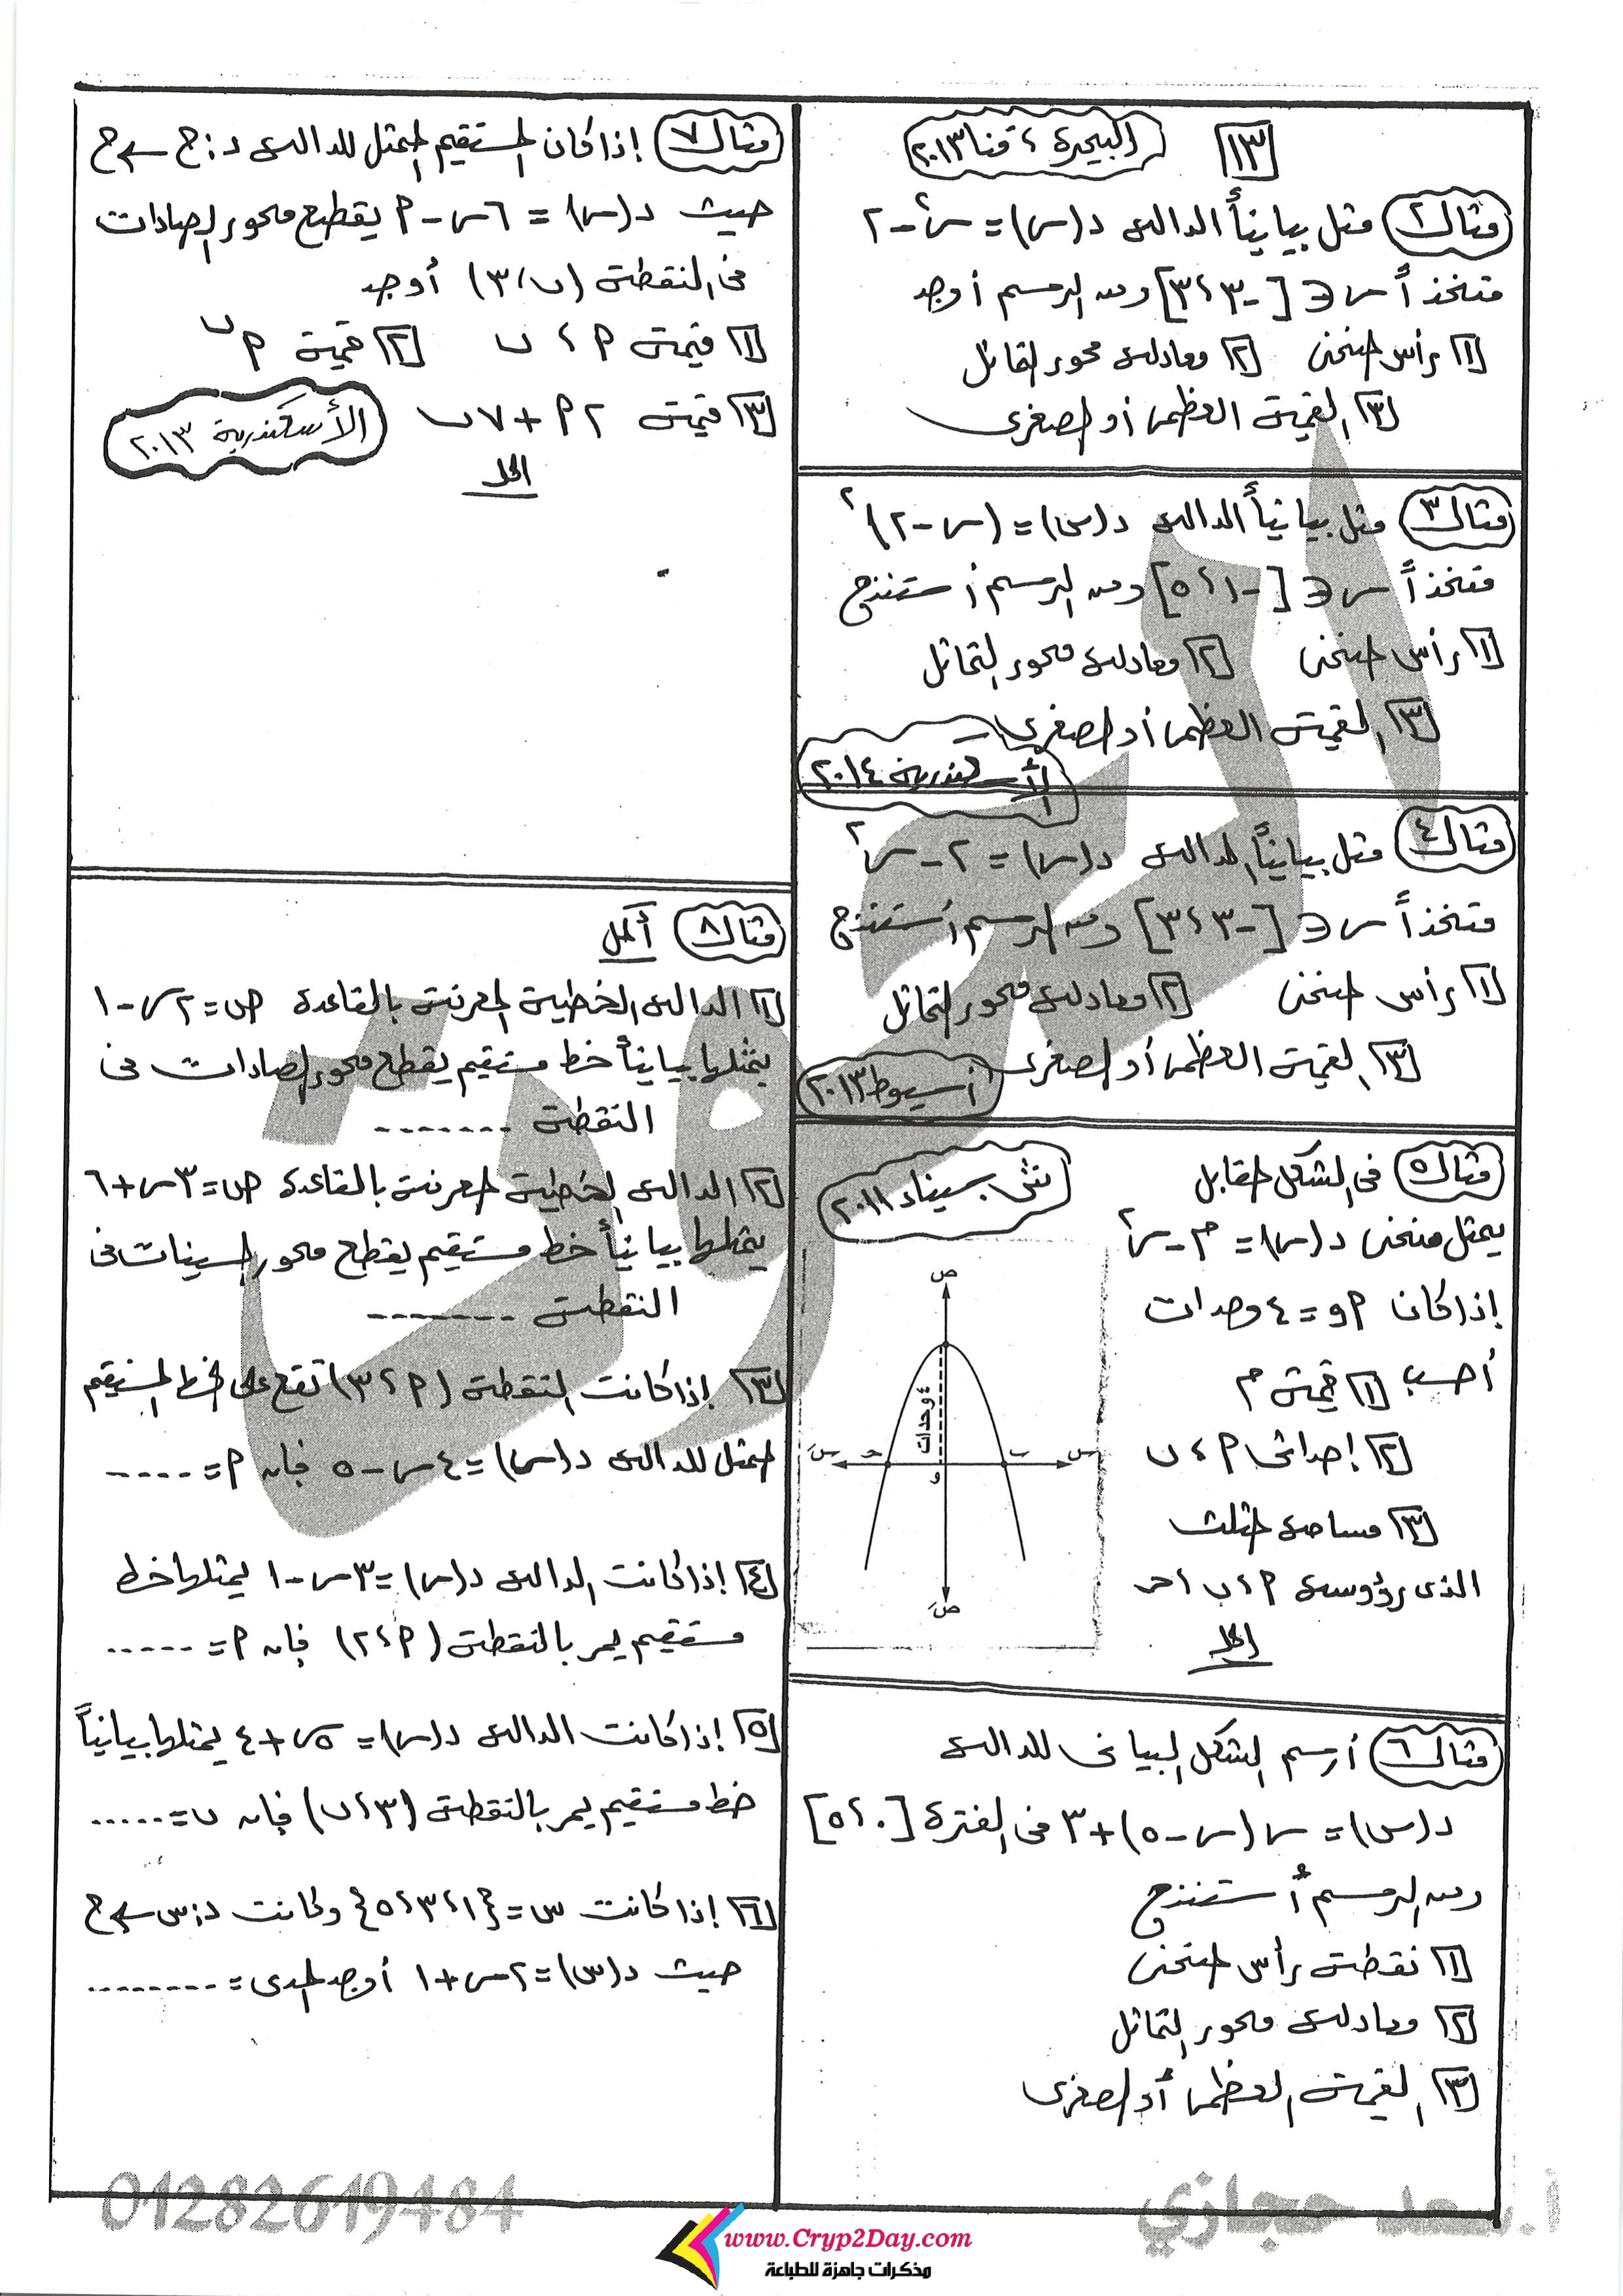 ١٣ البحيرة ، قنا ٢٠١٣
مثال ٢ مثل بيانياً الدالة د(س) = س٢ - ٢
متخذاً س ∈ [-٣ ، ٣] ومن الرسم أوجد
١ رأس المنحنى ٢ معادلة محور التماثل
٣ القيمة العظمى أو الصغرى
مثال ٣ مثل بيانياً الدالة د(س) = (س - ٢)٢
متخذاً س ∈ [-١ ، ٥] ومن الرسم أستنتج
١ رأس المنحنى ٢ معادلة محور التماثل
٣ القيمة العظمى أو الصغرى
الأسكندرية ٢٠١٤
مثال ٤ مثل بيانياً الدالة د(س) = ٢ - س٢
متخذاً س ∈ [-٣ ، ٣] ومن الرسم أستنتج
١ رأس المنحنى ٢ معادلة محور التماثل
٣ القيمة العظمى أو الصغرى
أسيوط ٢٠١٣
مثال ٥ فى الشكل المقابل
ش سيناء ٢٠١١
يمثل منحنى د(س) = م - س٢
إذا كان أو = ٤ وحدات
أحسب ١ قيمة م
٢ إحداثى أ ، ب
٣ مساحة المثلث
الذى رؤوسه أ ، ب ، جـ
الحل
ص
٤ وحدات
سَ جـ و ب س
صَ
مثال ٦ أرسم الشكل البيانى للدالة
د(س) = س(س - ٥) + ٣ فى الفترة [٠ ، ٥]
ومن الرسم أستنتج
١ نقطة رأس المنحنى
٢ معادلة محور التماثل
٣ القيمة العظمى أو الصغرى
مثال ٧ إذا كان المستقيم الممثل للدالة د : ح ← ح
حيث د(س) = ٦س - أ يقطع محور الصادات
فى النقطة (ب ، ٣) أوجد
١ قيمة أ ، ب ٢ قيمة أب
٣ قيمة ٢أ + ٧ب
الأسكندرية ٢٠١٣
الحل
مثال ٨ أكمل
١ الدالة الخطية المعرفة بالقاعدة ص = ٢س - ١
يمثلها بيانياً خط مستقيم يقطع محور الصادات فى
النقطة -------
٢ الدالة الخطية المعرفة بالقاعدة ص = ٣س + ٦
يمثلها بيانياً خط مستقيم يقطع محور السينات فى
النقطة -------
٣ إذا كانت النقطة (أ ، ٣) تقع على الخط المستقيم
الممثل للدالة د(س) = ٤س - ٥ فإن أ = -----
٤ إذا كانت الدالة د(س) = ٣س - ١ يمثلها خط
مستقيم يمر بالنقطة (أ ، ٢) فإن أ = -----
٥ إذا كانت الدالة د(س) = ٥س + ٤ يمثلها بيانياً
خط مستقيم يمر بالنقطة (٣ ، ب) فإن ب = .....
٦ إذا كانت س = {١ ، ٣ ، ٥} وكانت د : س ← ح
حيث د(س) = ٢س + ١ أوجد المدى = --------
01282619484
أ. سعد حجازي
www.Cryp2Day.com
مذكرات جاهزة للطباعة